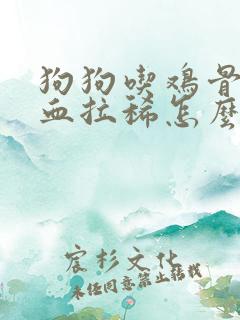 狗狗喫鸡骨
血拉稀怎麽
宸杉文化
未经同意禁止转载